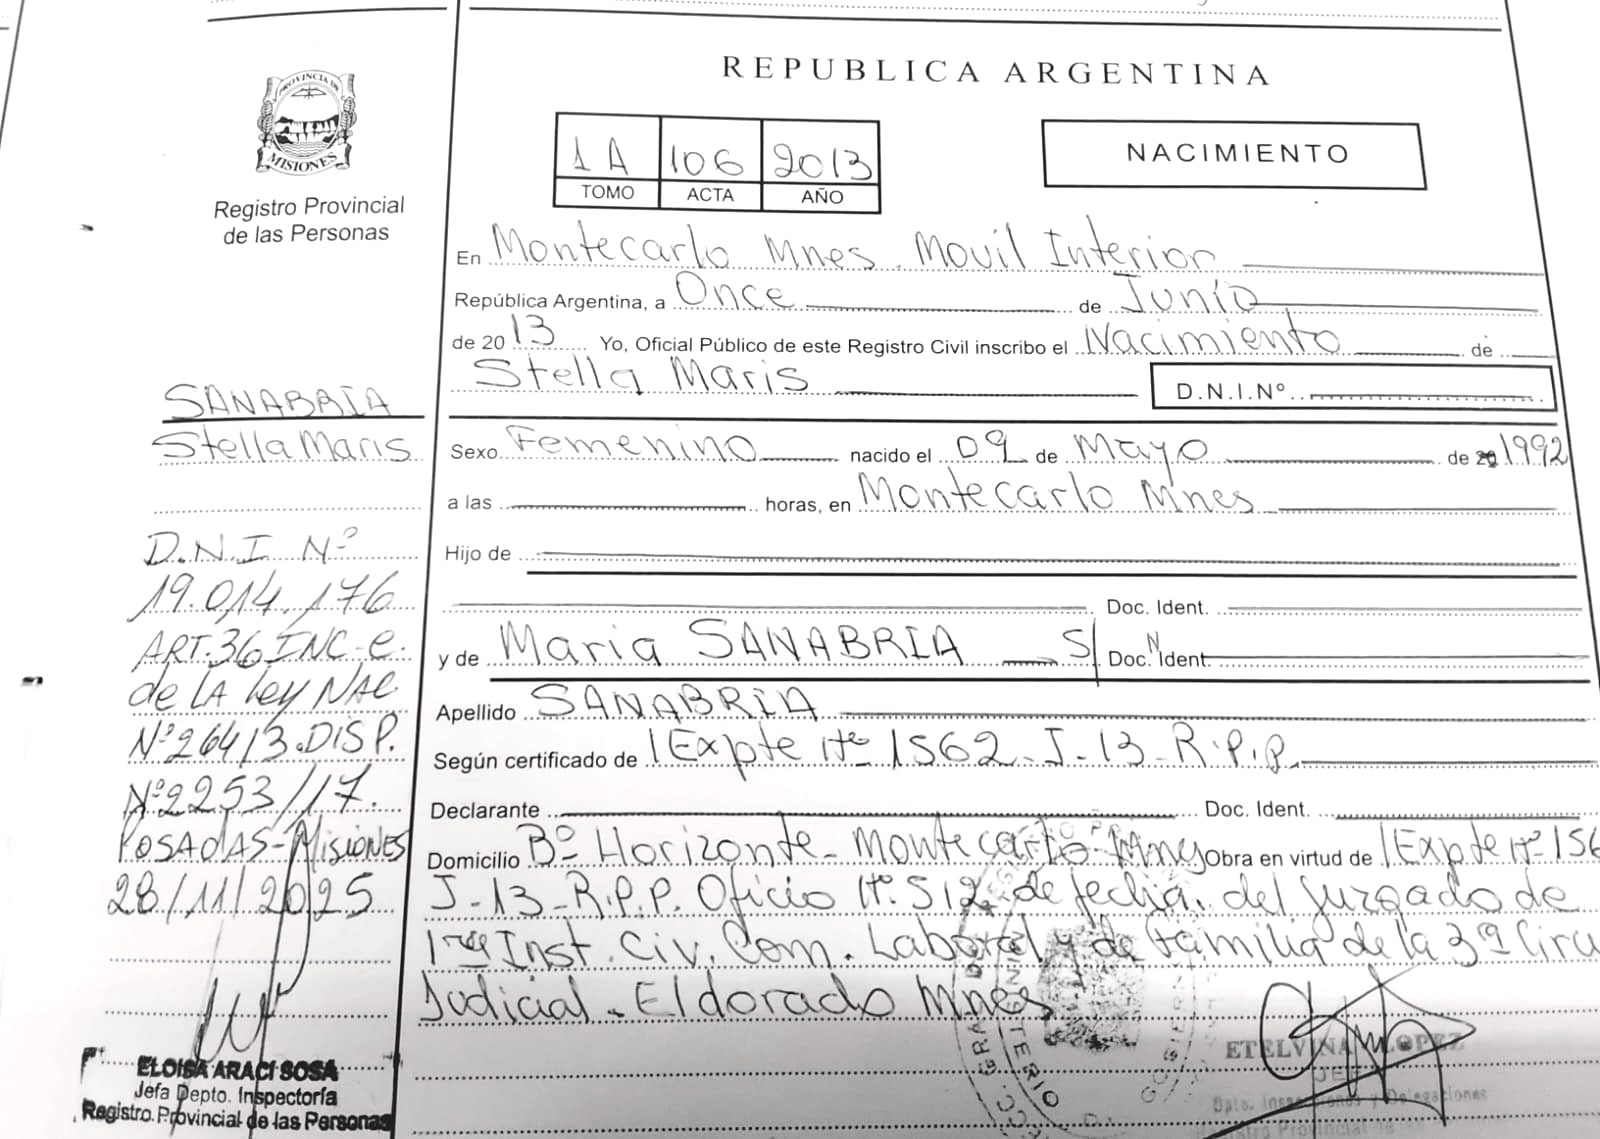 REPUBLICA ARGENTINA
PROVINCIA DE
MISIONES
Registro Provincial
de las Personas
1A 106 2013
TOMO ACTA AÑO
NACIMIENTO
En Montecarlo Mnes. Movil Interior
República Argentina, a Once de Junio
de 2013 Yo, Oficial Público de este Registro Civil inscribo el Nacimiento de
Stella Maris D.N.I.Nº
Sexo Femenino nacido el 09 de Mayo de 20 1992
a las horas, en Montecarlo Mnes
Hijo de
Doc. Ident.
y de Maria SANABRIA S/N Doc. Ident.
Apellido SANABRIA
Según certificado de Expte Nº 1562-J-13-R.P.P.
Declarante Doc. Ident.
Domicilio Bº Horizonte-Montecarlo-Mnes Obra en virtud de Expte Nº 156
J-13-R.P.P. Oficio Nº 512 de fecha. del Juzgado de
1ra Inst. Civ. Com. Laboral y de Familia de la 3ª Circu
Judicial. Eldorado Mnes
SANABRIA
Stella Maris
D.N.I. Nº
19.014.176
ART.36 INC-e.
de LA Ley NAC
Nº26413.DISP.
Nº2253/17.
POSADAS-MISIONES
28/11/2025
ELOISA ARACI SOSA
Jefa Depto. Inspectoría
Registro Provincial de las Personas
ETELVINA LOPEZ
JEFA